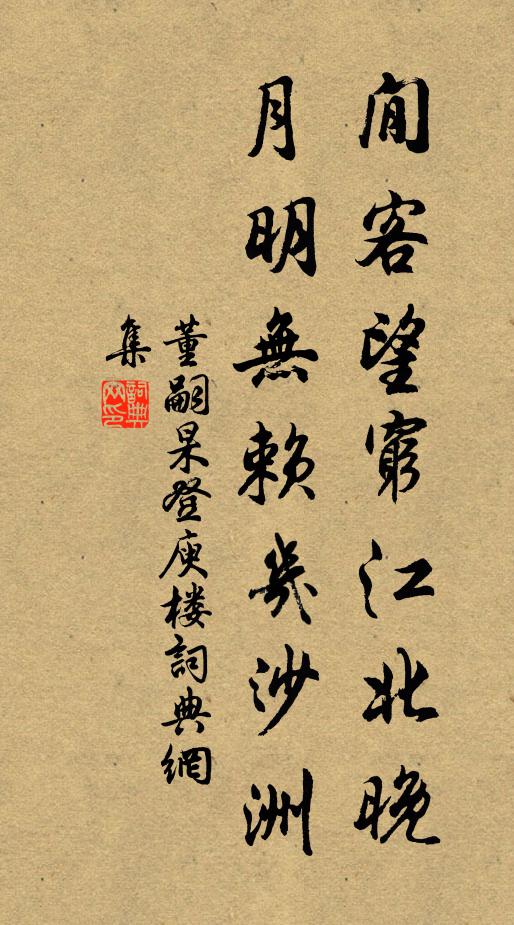 閒客望窮江北晚
月明無賴幾沙洲
董嗣杲登庾楼詞典網
集
詞典
网印